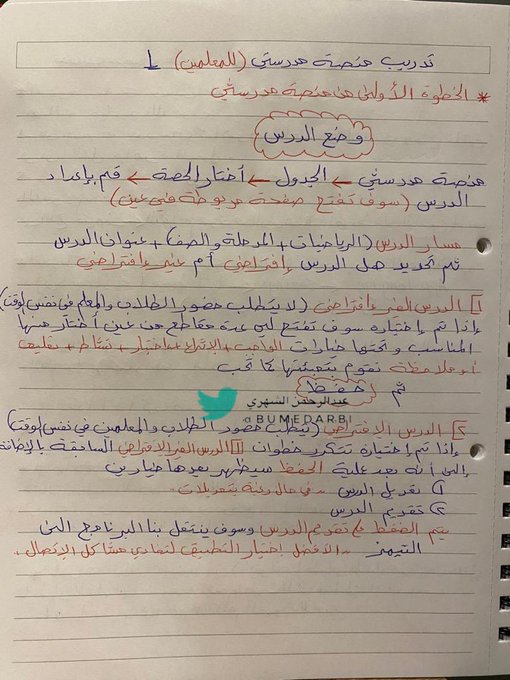 تدريب منصة مدرستي (للمعلمين) 1
* الخطوة الأولى من منصة مدرستي
وضع الدرس
منصة مدرستي ← الجدول ← أختار الحصة ← قم بإعداد
الدرس (سوف تفتح صفحة مربوطة في عين)
مسار الدرس (الرياضيات + المرحلة والصف) + عنوان الدرس
ثم تحديد هل الدرس إفتراضي أم غير إفتراضي
1 الدرس الغير إفتراضي (لا يتطلب حضور الطلاب والمعلم في نفس الوقت)
إذا تم إختياره سوف تفتح لك عدة مقاطع من عين أختار منها
المناسب وتحتها خيارات الواجب + الإثراء + اختبار + نشاط + تكليف
أو ملاحظة نقوم بتعبئتها كما تحب
ثم حفظ
عبدالرحمن الشهري
@BUMEDARBI
2 الدرس الافتراضي (يتطلب حضور الطلاب والمعلمين في نفس الوقت)
إذا تم إختياره تتكرر خطوات 1 الدرس الغير الافتراضي السابقة بالإضافة
إلى أنه بعد عملية الحفظ سيظهر بعدها خيارين
1 تعديل الدرس "في حال رغبته بتعديلات"
2 تقديم الدرس
يتم الضغط في تقديم الدرس وسوف ينتقل بنا البرنامج الى
التيمز "الافضل إختيار التطبيق لتفادي مشاكل الإتصال"